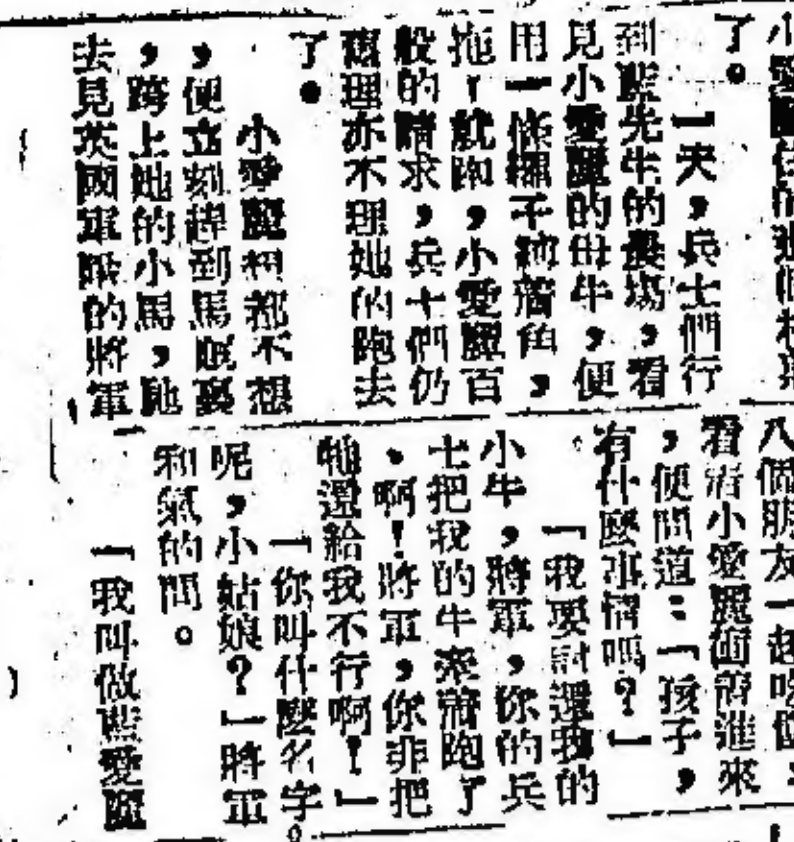 了。
一天，兵士們行
到藍先生的農場，看
見小愛麗的母牛，便
用一條繩子縛着角，
拖了就跑，小愛麗百
般的請求，兵士們仍
舊理亦不理她的跑去
了。
小愛麗想都不想
，便立刻趕到馬廐裏
，跨上她的小馬，馳
去見英國軍隊的將軍
八個朋友一起吃
看着小愛麗
進來
，便問道：「孩子，
有什麼事情嗎？」
「我要討還我的
小牛，將軍，你的兵
士把我的牛牽着跑了
，啊！將軍，你非把
牠還給我不行啊！」
「你叫什麼名字。
呢，小姑娘？」將軍
和氣的問。
「我叫做藍愛麗